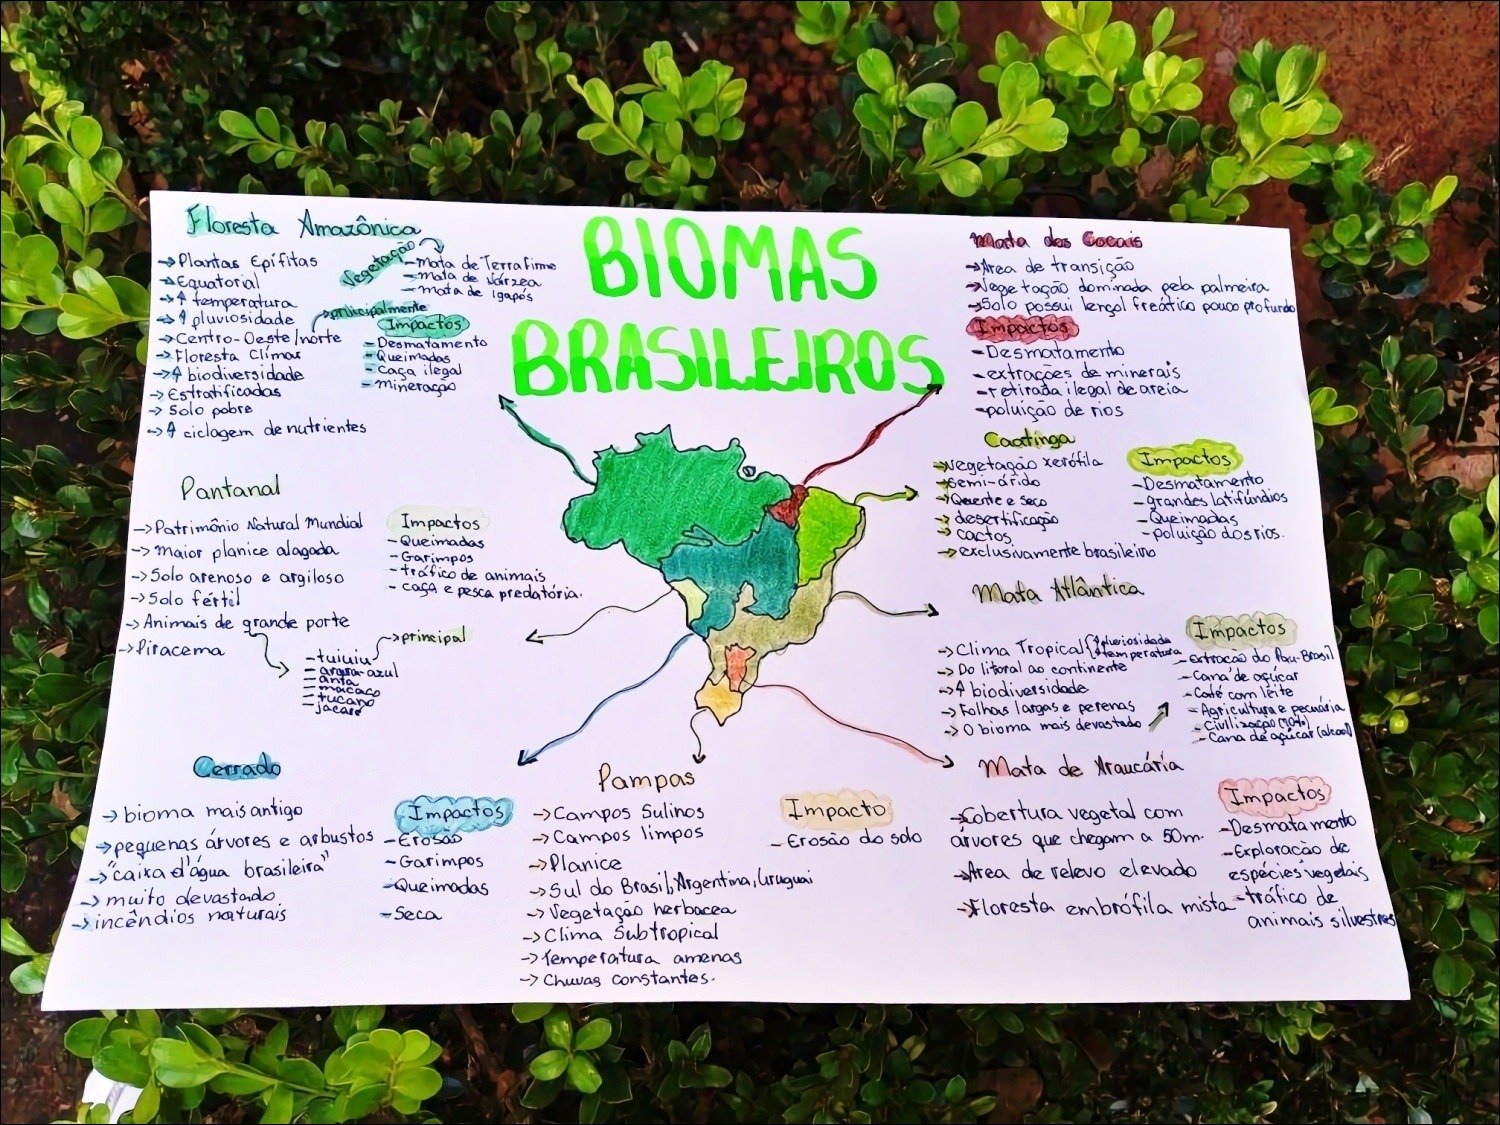 BIOMAS
BRASILEIROS
Floresta Amazônica
→Plantas Epífitas
→Equatorial
→↑ temperatura
→↑ pluviosidade
→Centro-Oeste/norte
→Floresta Clímax
→↑ biodiversidade
→Estratificadas
→Solo pobre
→↑ ciclagem de nutrientes
Vegetação
-Mata de Terra Firme
-Mata de Várzea
-Mata de Igapós
→principalmente
Impactos
-Desmatamento
-Queimadas
-Caça ilegal
-Mineração
Pantanal
→Patrimônio Natural Mundial
→maior planice alagada
→Solo arenoso e argiloso
→Solo fértil
→Animais de grande porte
→Piracema
→principal
-tuiuiu
-arara-azul
-anta
-macaco
-tucano
-jacaré
Impactos
-Queimadas
-Garimpos
-tráfico de animais
-caça e pesca predatória.
Cerrado
→bioma mais antigo
→pequenas árvores e arbustos
→"caixa d'água brasileira"
→muito devastado
→incêndios naturais
Impactos
-Erosão
-Garimpos
-Queimadas
-Seca
Pampas
→Campos Sulinos
→Campos limpos
→Planice
→Sul do Brasil, Argentina, Uruguai
→Vegetação herbacea
→Clima Subtropical
→Temperatura amenas
→Chuvas constantes.
Impacto
-Erosão do solo
Mata dos Cocais
→Área de transição
→Vegetação dominada pela palmeira
→Solo possui lençol freático pouco profundo
Impactos
-Desmatamento
-extrações de minerais
-retirada ilegal de areia
-poluição de rios
Caatinga
→Vegetação xerófila
→Semi-árido
→Quente e seco
→desertificação
→cactos
→exclusivamente brasileiro
Impactos
-Desmatamento
-grandes latifúndios
-Queimadas
-poluição dos rios.
Mata Atlântica
→Clima Tropical { ↑pluviosidade
↑temperatura
→Do litoral ao continente
→↑ biodiversidade
→Folhas largas e perenes
→O bioma mais devastado
Impactos
-Extração do Pau-Brasil
-Cana de açúcar
-Café com leite
-Agricultura e pecuária
-Civilização (70%)
-Cana de açúcar (alcool)
Mata de Araucária
→Cobertura vegetal com
árvores que chegam a 50m.
→Área de relevo elevado
→Floresta embrófila mista
Impactos
-Desmatamento
-Exploração de
espécies vegetais
-tráfico de
animais silvestres